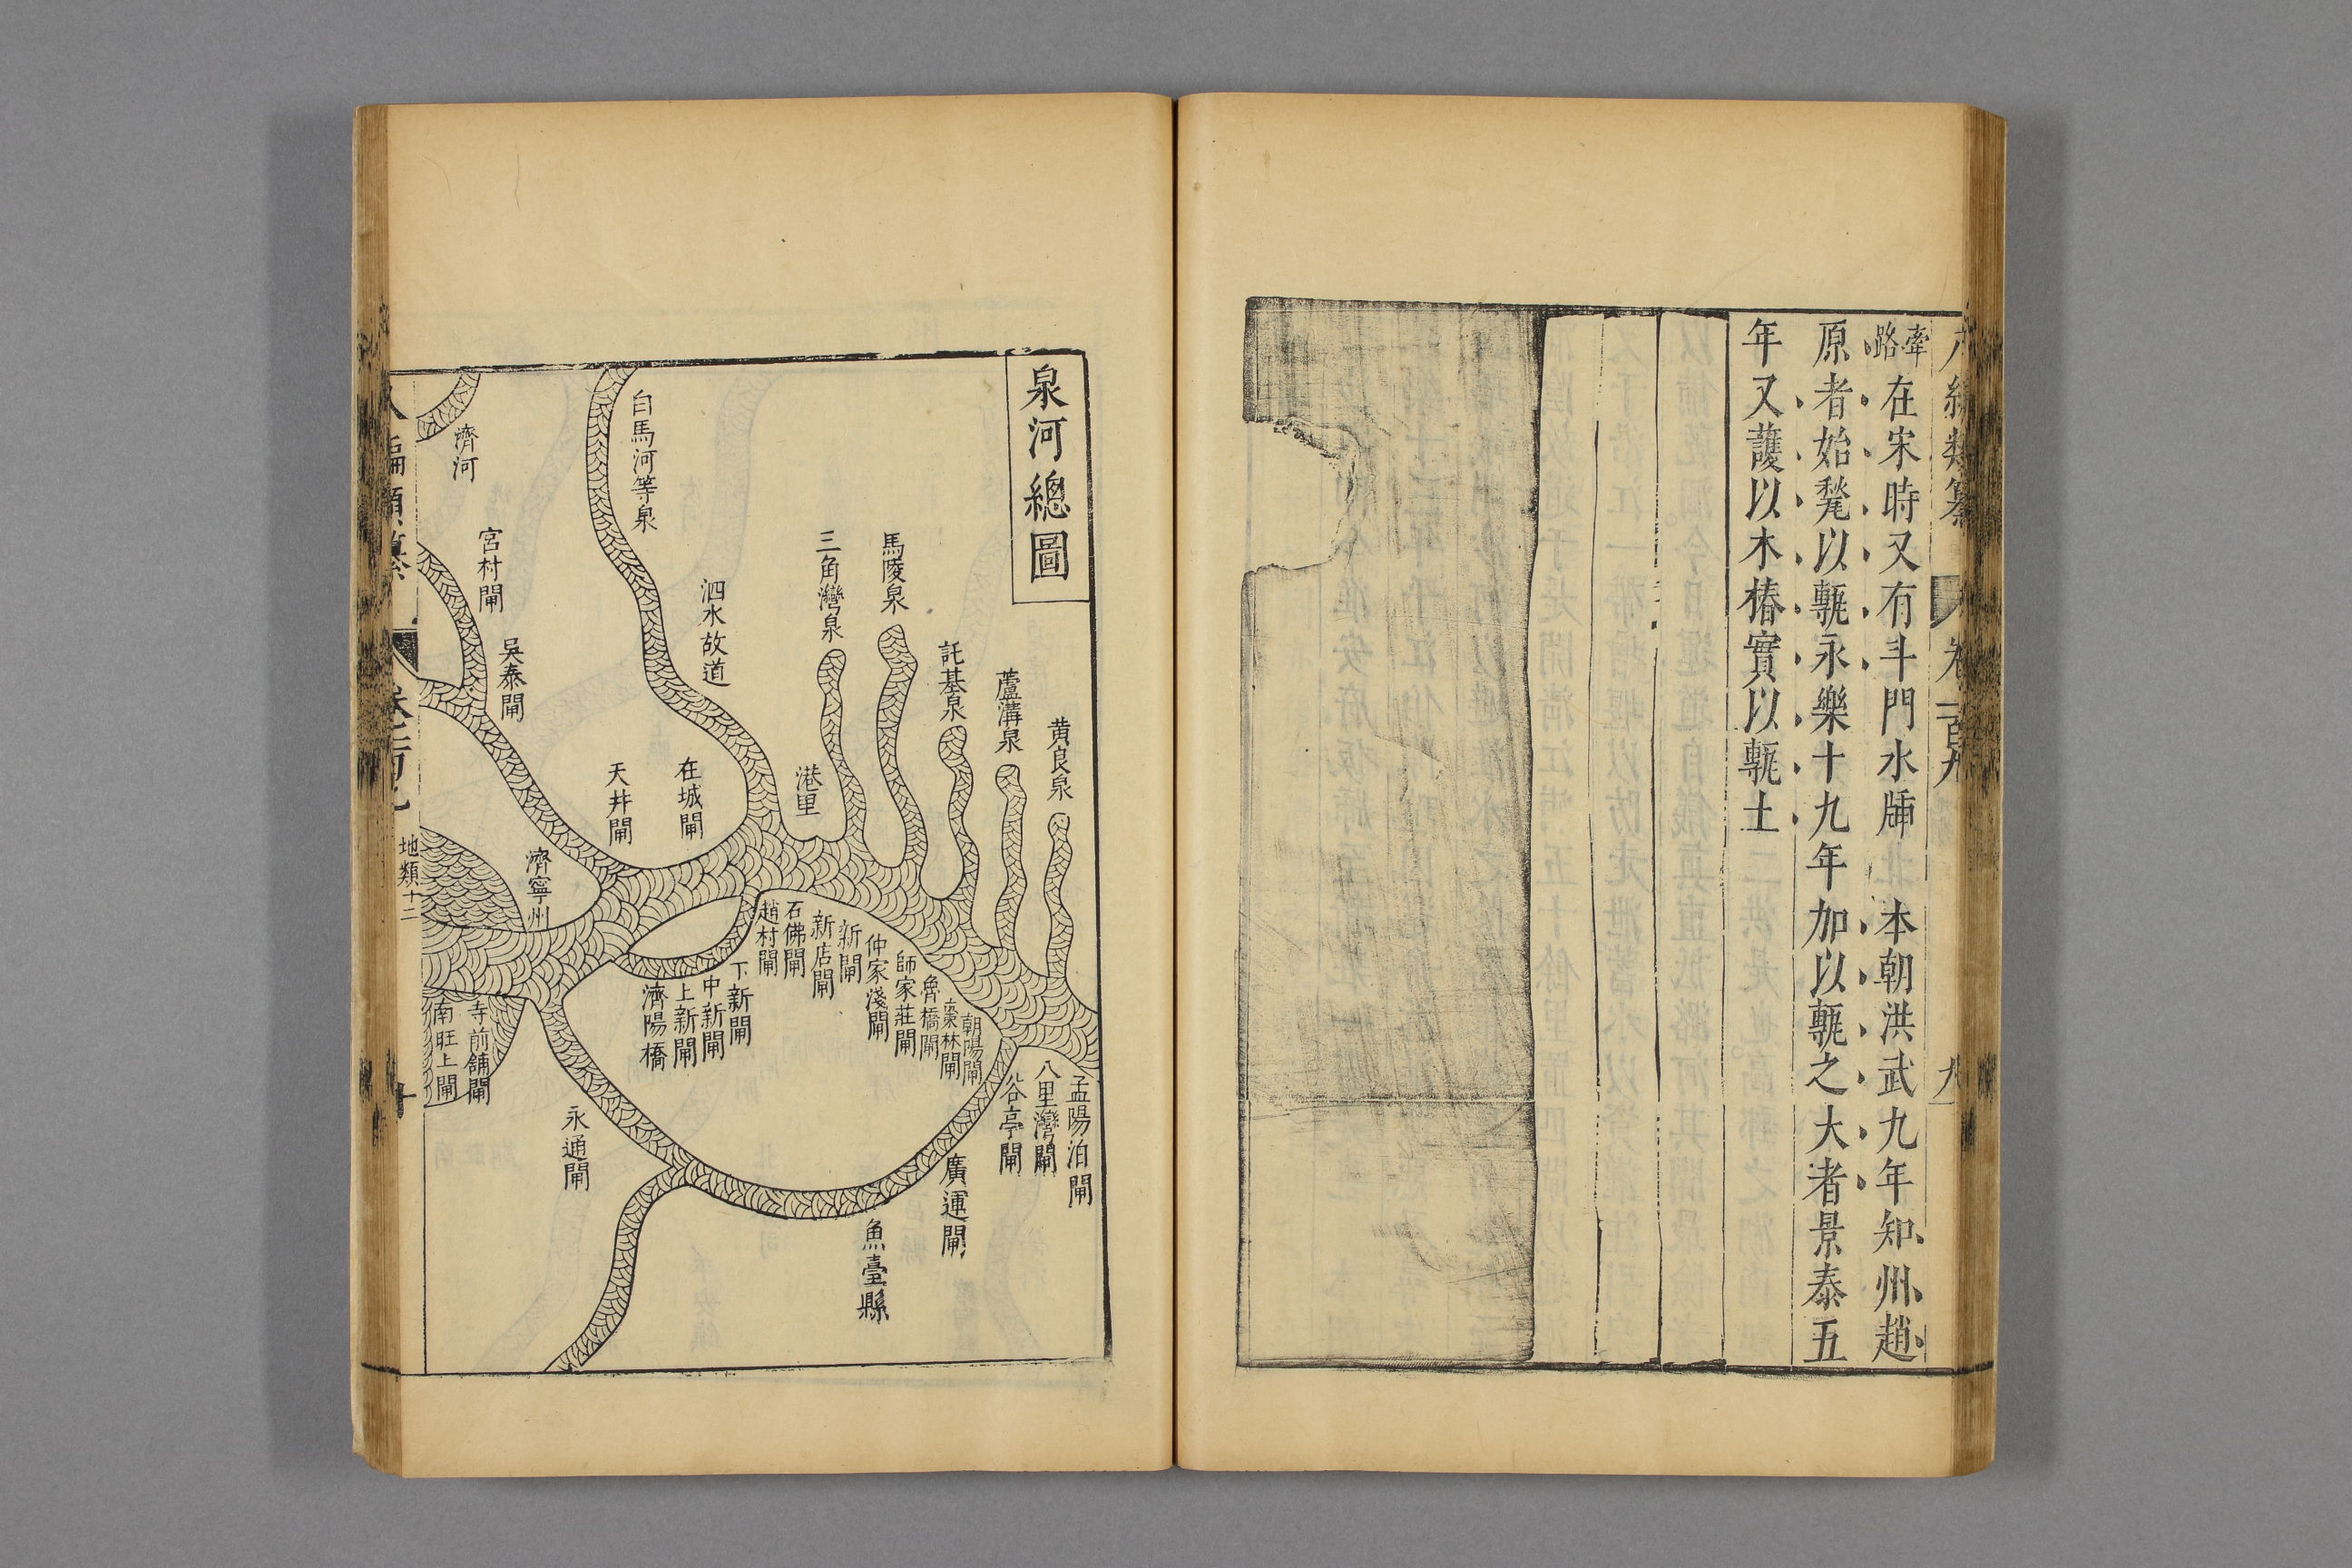 牽路在宋時又有斗門水牐北本朝洪武九年知州趙
原者始甃以甎永樂十九年加以甎之大者景泰五
年又護以木樁實以甎土
泉河總圖
黃良泉
蘆溝泉
託基泉
馬陵泉
三角灣泉
港里
泗水故道
白馬河等泉
在城閘
天井閘
吳泰閘
宮村閘
濟河
濟寧州
孟陽泊閘
八里灣閘
谷亭閘
朝陽閘
棗林閘
魯橋閘
師家莊閘
仲家淺閘
新閘
新店閘
石佛閘
趙村閘
下新閘
中新閘
上新閘
濟陽橋
廣運閘
魚臺縣
永通閘
寺前舖閘
南旺上閘
地類十二